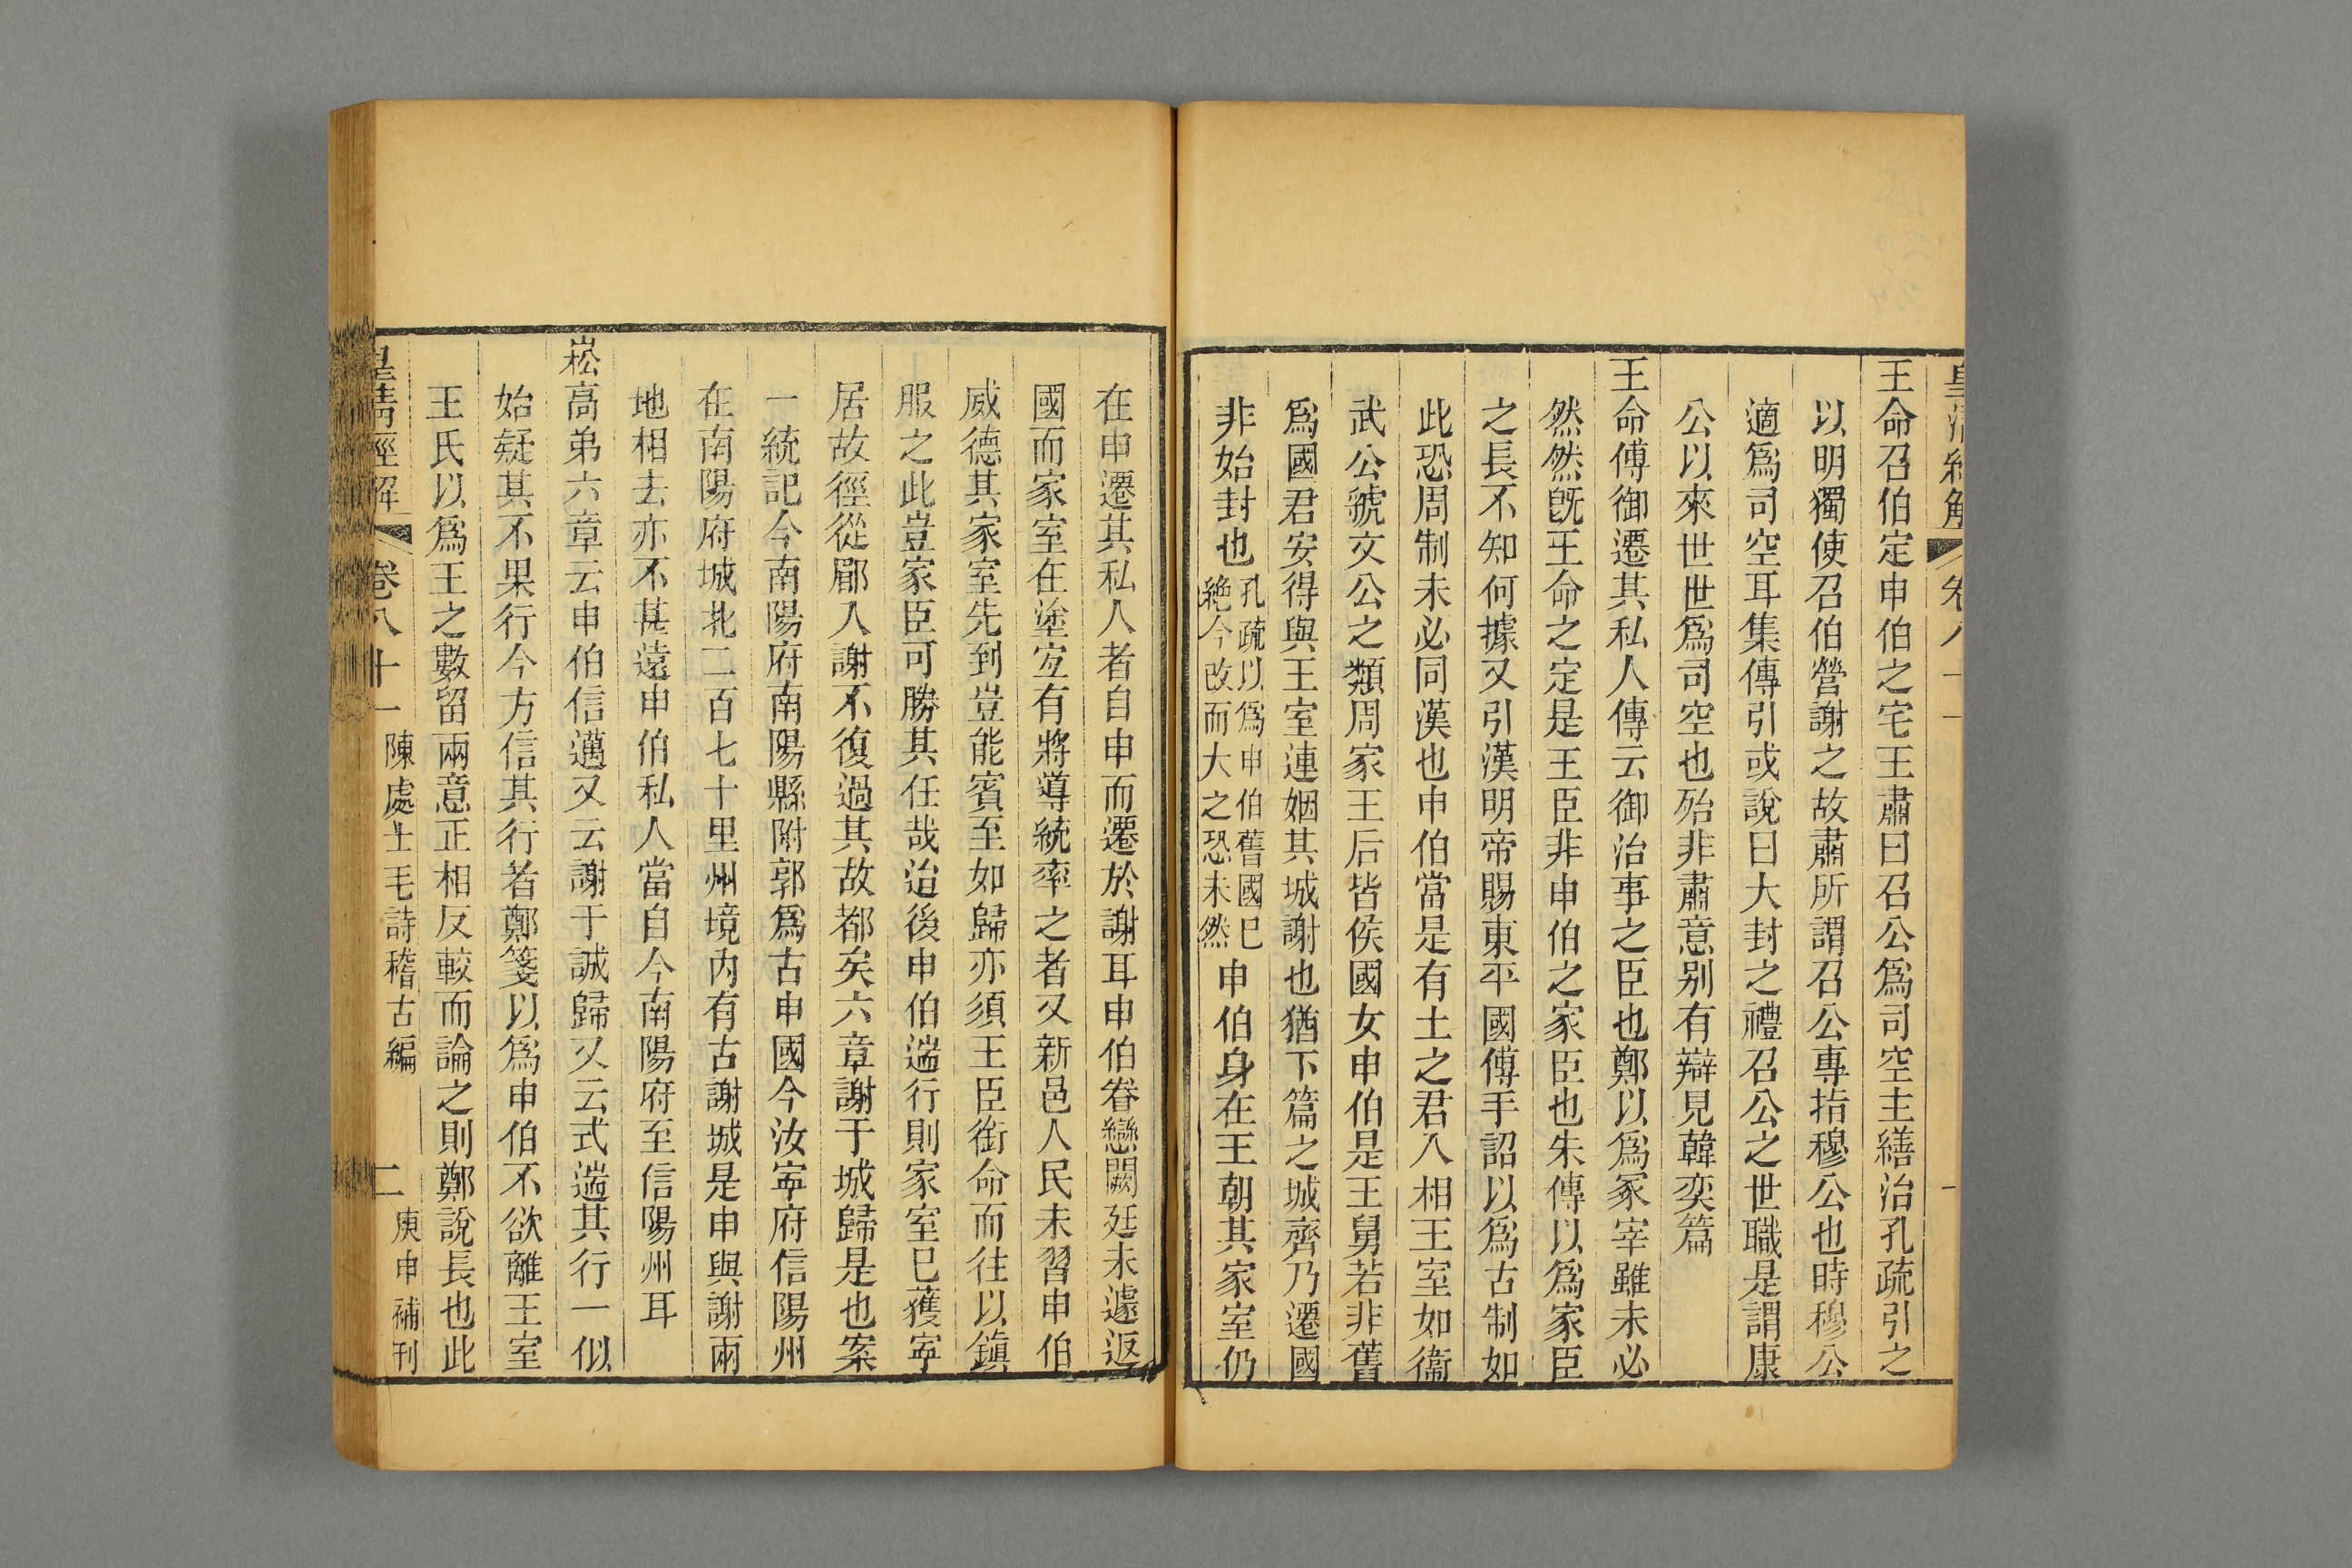 王命召伯定申伯之宅王肅曰召公爲司空主繕治孔疏引之
以明獨使召伯營謝之故肅所謂召公專指穆公也時穆公
適爲司空耳集傳引或說曰大封之禮召公之世職是謂康
公以來世世爲司空也殆非肅意别有辯見韓奕篇
王命傅御遷其私人傳云御治事之臣也鄭以爲冢宰雖未必
然然旣王命之定是王臣非申伯之家臣也朱傳以爲家臣
之長不知何據又引漢明帝賜東平國傅手詔以爲古制如
此恐周制未必同漢也申伯當是有土之君入相王室如衞
武公虢文公之類周家王后皆侯國女申伯是王舅若非舊
爲國君安得與王室連姻其城謝也猶下篇之城齊乃遷國
非始封也孔疏以爲申伯舊國已絶今改而大之恐未然申伯身在王朝其家室仍
在申遷其私人者自申而遷於謝耳申伯眷戀闕廷未遽返
國而家室在塗宐有將導統率之者又新邑人民未習申伯
威德其家室先到豈能賓至如歸亦須王臣銜命而往以鎮
服之此豈家臣可勝其任哉迨後申伯遄行則家室已獲寧
居故徑從郿入謝不復過其故都矣六章謝于城歸是也案
一統記今南陽府南陽縣附郭爲古申國今汝寧府信陽州
在南陽府城北二百七十里州境内有古謝城是申與謝兩
地相去亦不甚遠申伯私人當自今南陽府至信陽州耳
崧高弟六章云申伯信邁又云謝于誠歸又云式遄其行一似
始疑其不果行今方信其行者鄭箋以爲申伯不欲離王室
王氏以爲王之數留兩意正相反較而論之則鄭說長也此
皇淸經解 卷八十一 陳處士毛詩稽古編 二 庚申補刊